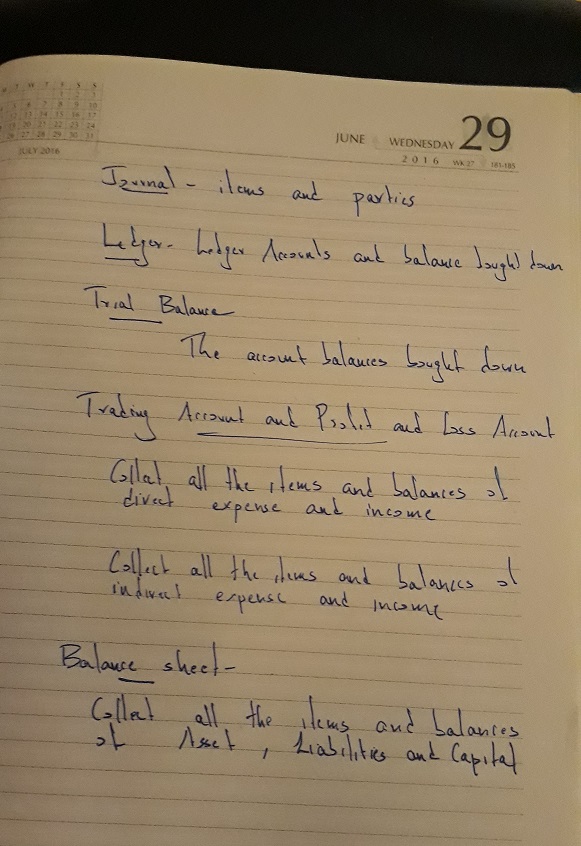 JULY 2016
JUNE WEDNESDAY 29
2016 WK 27 181-185
Journal - items and parties
Ledger - Ledger Accounts and balance bought down
Trial Balance
The account balances bought down
Trading Account and Profit and Loss Account
Collect all the items and balances of
direct expense and income
Collect all the items and balances of
indirect expense and income
Balance sheet -
Collect all the items and balances
of Asset, Liabilities and Capital